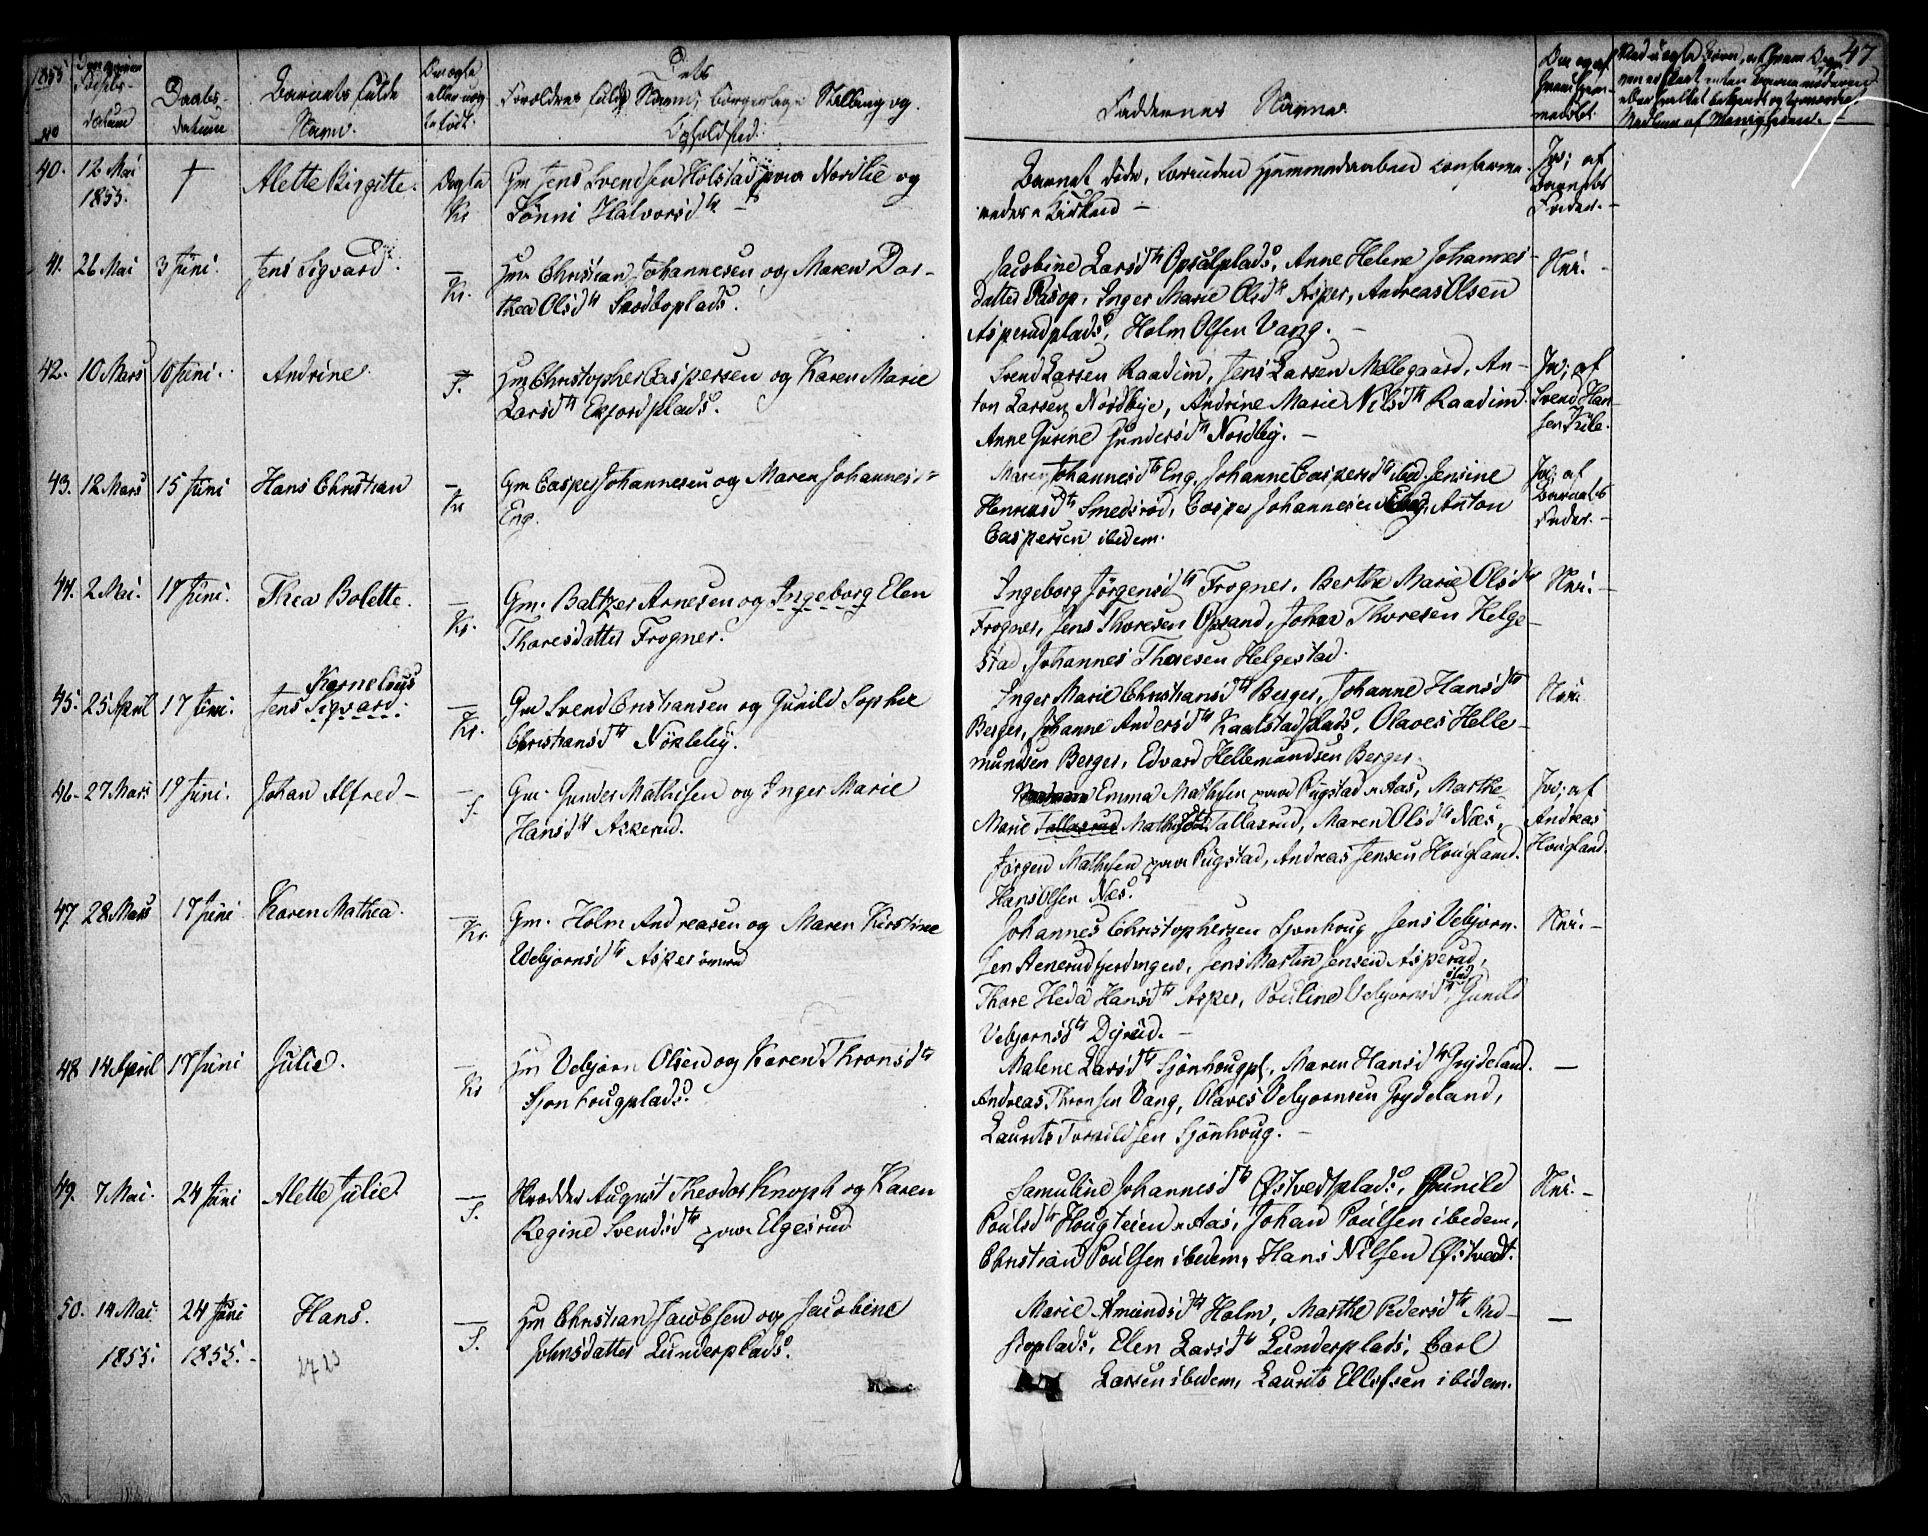 47
1855
No
Daabs-
datum
Barnets fulde
Navn.
Om ægte
eller uæg-
te født.
Forældres fulde Navn, borgerlige Stilling og
Opholdsted.
Faddernes Navne.
40. 12 Mai † Alette Birgitte. Ægte Gm Jens Svendsen Holstad Nordlie og
1855. Kr. Sønni Halvorsdtr –
Barnet døde, forinden Hjemmedaaben confirme-
redes i Kirken – Jv; af
Barnets
Fader. –
41. 26 Mai 3 Juni. Jens Sigvard. – Kr. Hm. Christian Johannesen og Maren Dor-
thea Olsdtr Skodboplads.
Jacobine Larsdtr Opsalplads, Anne Helene Johannes-
datter Pasop, Inger Marie Olsdtr Asper, Andreas Olsen
Asperudplads, Holm Olsen Vang. – Nei. –
42. 10 Mars 10 Juni. Andrine. – F. Hm Christopher Caspersen og Karen Marie
Larsdtr Exfordplads.
Svend Larsen Raadim, Jens Larsen Mellegaard, An-
ton Larsen Nordbye, Andrine Marie Nilsdtr Raadim
Anne Gurine Gundersdtr Nordby. – Jv; af
Svend Han-
sen
43. 12 Mars 15 Juni Hans Christian – Kr Gm Casper Johannesen og Maren Johannesd=
Eng.
Maren Johannesdtr Eng, Johanne Caspersdtr ibid. Jensine
Smedsrød, Casper Johannesen Eng, Anton
Caspersen ibidem. Jv; af
Barnets
Fader. –
44. 2 Mai. 17 Juni. Thea Bolette. – Kr. Gm. Baltzer Arnesen og Ingeborg Elen
Thoresdatter Frogner.
Ingeborg Jørgensdtr Frogner, Berthe Marie Olsdtr
Frogner, Jens Thoresen Opsand, Johan Thoresen Helge-
stad, Johannes Thoresen Helgestad. Nei. –
Kornelius
45. 25 April 17 Juni. Jens Sigvard. – Kr. Gm Svend Christiansen og Gunild Sophie
Christiansdtr Nökleby.
Inger Marie Christiansdtr Berger, Johanne Hansdtr
Berger, Johanne Andersdtr Kaatstadplads, Olaves Helle-
mundsen Berger, Edvard Hellemundsen Berger. Nei.
46. 27 Mars 17 Juni. Johan Alfred – – F. Gm. Gunder Mathisen og Inger Marie
Hansdtr Askerud.
Emma Mathisen Rugstad i Aas, Marthe
Marie Tallasrud, Maren Olsdtr Næs,
Jørgen Mathisen Rugstad, Andreas Jensen Hougland.
Hans Olsen Næs. Jv; af
Andreas
Hougland.
47 28 Mars 17 Juni Karen Mathea. – Kr. Gm. Holm Andreasen og Maren Kirstine
Vebjornsdtr Asper
Johannes Christophersen Sjonhoug Jens Vebjorn-
sen Jens Martin Jensen Asperud,
Thore Heda Hansdtr Asper, Pouline Vebjornsdtr ibid, Gunild
Vebjornsdtr Dyrud. – Nei. –
48 14 April 17 Juni Julie. – Kr Hm Vebjørn Olsen og Karen Thronsdtr
Sjonhougplads.
Malene Larsdtr Sjönhougpl, Maren Hansdtr Grydeland.
Andreas Thronsen Vang, Olaves Vebjornsen Grydeland,
Laurits Torkildsen Sjönhoug. – –
49. 7 Mai. 24 Juni Alette Julie. – F. Skrædder August Theodor Knoph og Karen
Regine Svendsdtr Elgesrud
Samuline Johannesdtr Østvedtplads, Gunild
Poulsdtr Hougteien i Aas, Johan Poulsen ibidem,
Christian Poulsen ibidem, Hans Nilsen Østvedt. Nei. –
50. 14 Mai. 24 Juni Hans. – F. Hm Christian Jacobsen og Jacobine
1855. 1855. – Johnsdatter Lunderplads.
Marie Amundsdtr Holm, Marthe Pedersdtr Ned-
Elen Larsdtr Lunderplads, Carl
Larsen ibidem, Laurits Ellefsen ibidem. –